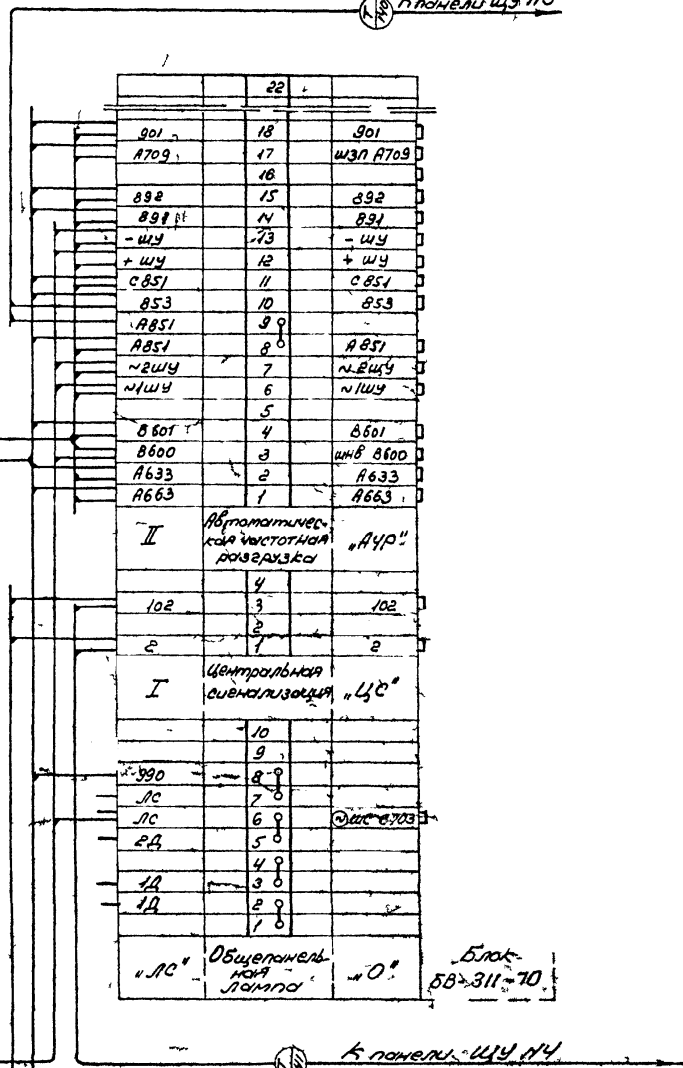 К панели ЩУ N3
22
901 18 901
А709 17 ШЗП А709
16
892 15 892
891 14 891
- ШУ 13 - ШУ
+ ШУ 12 + ШУ
С851 11 С851
853 10 853
А851 9
А851 8 А851
~2ШУ 7 ~2ШУ
~1ШУ 6 ~1ШУ
5
В601 4 В601
В600 3 ШНВ В600
А633 2 А633
А663 1 А663
II Автоматичес-
кая частотная „АЧР"
разгрузка
4
102 3 102
2
2 1 2
I Центральная
сигнализация „ЦС"
10
9
990 8
ЛС 7
ЛС 6
2Д 5
4
1Д 3
1Д 2
1
„ЛС" Общепанель-
ная „О"
лампа
Блок
БВ-311-70
К панели ЩУ N4